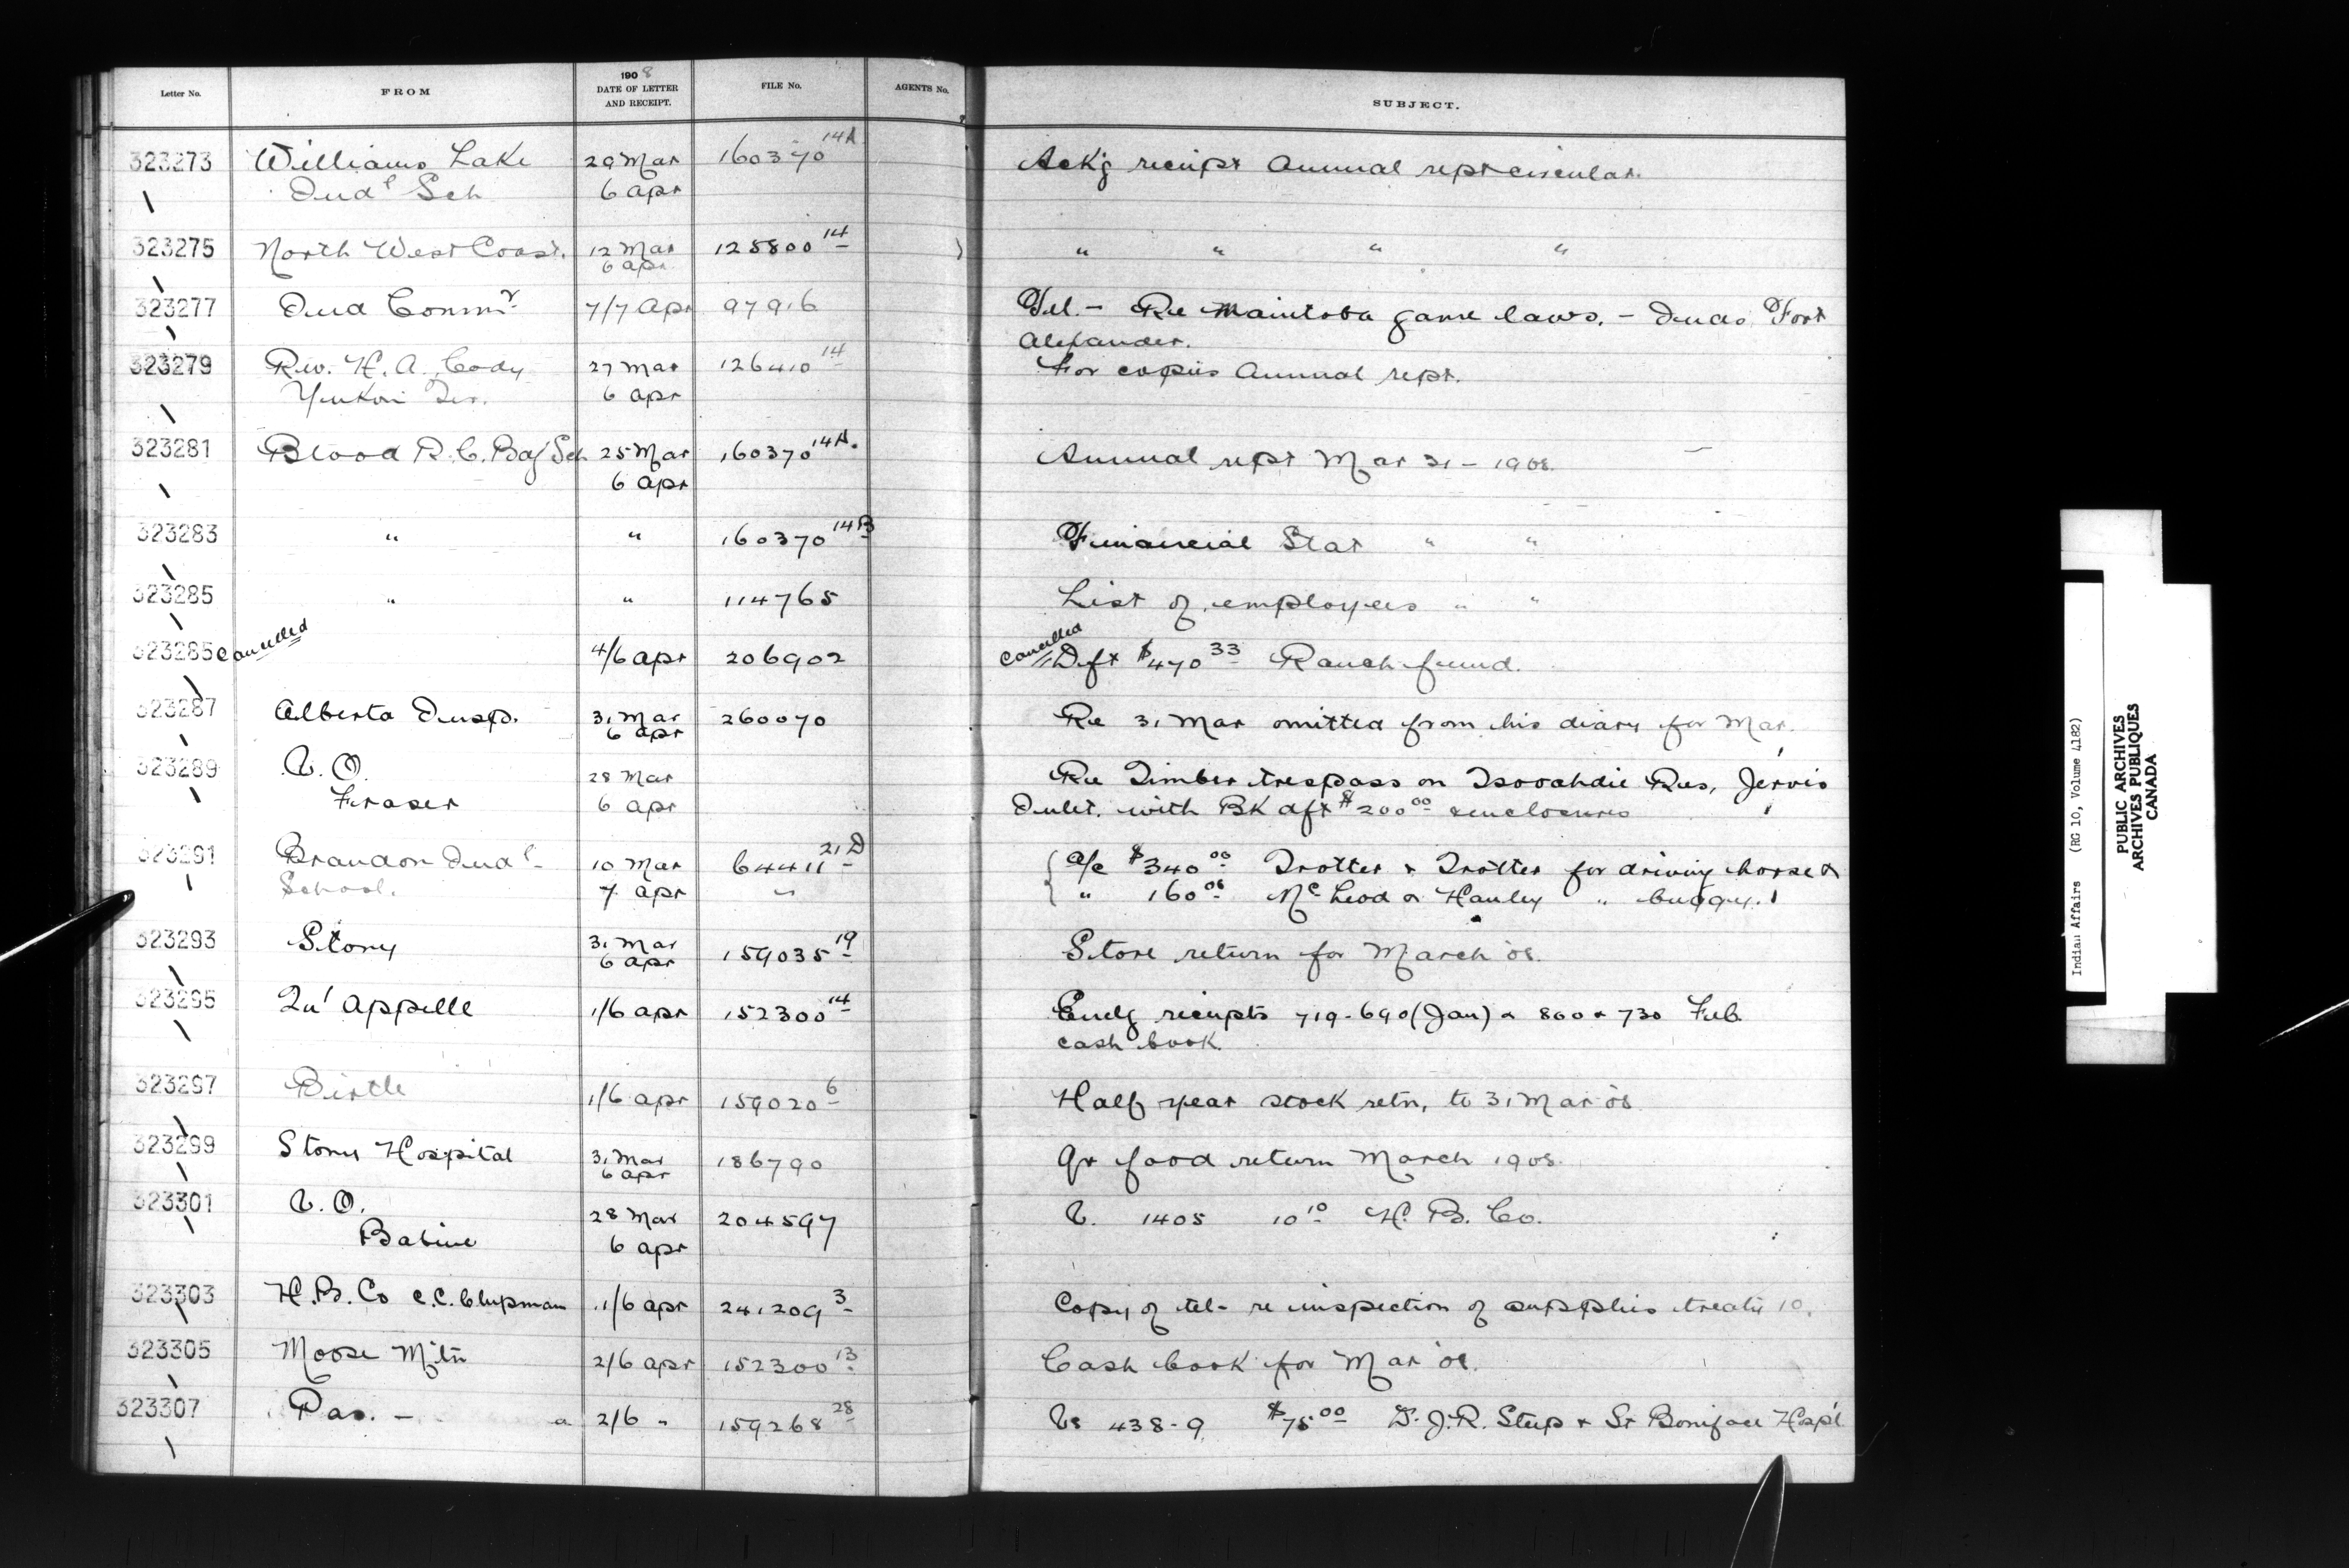 Letter No. FROM 1908 DATE OF LETTER AND RECEIPT. FILE No. AGENTS No. SUBJECT.
323273 Williams Lake 29 Mar 160370 14A Ackg receipt Annual rept circular.
Indl Sch 6 apr
323275 North West Coast. 12 Mar 125800 14 " " " "
6 apr
323277 Ind Commr 7/7 Apr 97916 Tel. - Re Manitoba game laws. - Inds. Fort
Alexander.
323279 Rev. H. A. Cody 27 Mar 126410 14 For copies Annual rept.
Yukon Ter. 6 apr
323281 Blood R. C. Bdg Sch 25 Mar 160370 14A. Annual rept Mar 31 - 1908.
6 apr
323283 " " 160370 14B Financial Stat " "
323285 " " 114765 List of employees " "
323285 cancelled 4/6 apr 206902 cancelled Dft $470 33 Ranch fund.
323287 Alberta Insp. 31 Mar 260070 Re 31 Mar omitted from his diary for Mar.
6 apr
323289 V. O. 28 Mar Re Timber trespass on Tsooahdie Res, Jervis
Fraser 6 apr Inlet. with BK dft $200 00 enclosures
323291 Brandon Indl 10 Mar 64411 21D a/c $340 00 Trotter & Trotter for driving horse &
School. 7 apr " " 160 00 Mc Leod & Hanley " buggy.
323293 Stony 31 Mar 159035 19 Store return for March '08.
6 apr
323295 Qu' Appelle 1/6 apr 152300 14 Encg receipts 719-690 (Jan) & 800 & 730 Feb.
cash book.
323297 Birtle 1/6 apr 159020 6 Half year stock retn, to 31 Mar '08
323299 Stony Hospital 31 Mar 186790 Qr food return March 1908.
6 apr
323301 V. O. 28 Mar 204597 V. 1405 10 10 H. B. Co.
Babine 6 apr
323303 H. B. Co C.C. Chipman 1/6 apr 241209 3 Copy of tel- re inspection of supplies treaty 10.
323305 Moose Mtn 2/6 apr 152300 13 Cash book for Mar '08.
323307 Pas. - 2/6 " 159268 28 Vs 438-9 $75 00 D. J. R. Steep & St Boniface Hospl
Indian Affairs (RG 10, Volume 4182)
PUBLIC ARCHIVES
ARCHIVES PUBLIQUES
CANADA